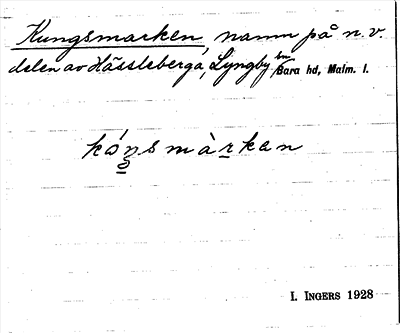 Kungsmarken, namn på n.v.
delen av Hässleberga, Lyngby sn Bara hd, Malm. l.
kóŋsmàrkan
I. INGERS 1928